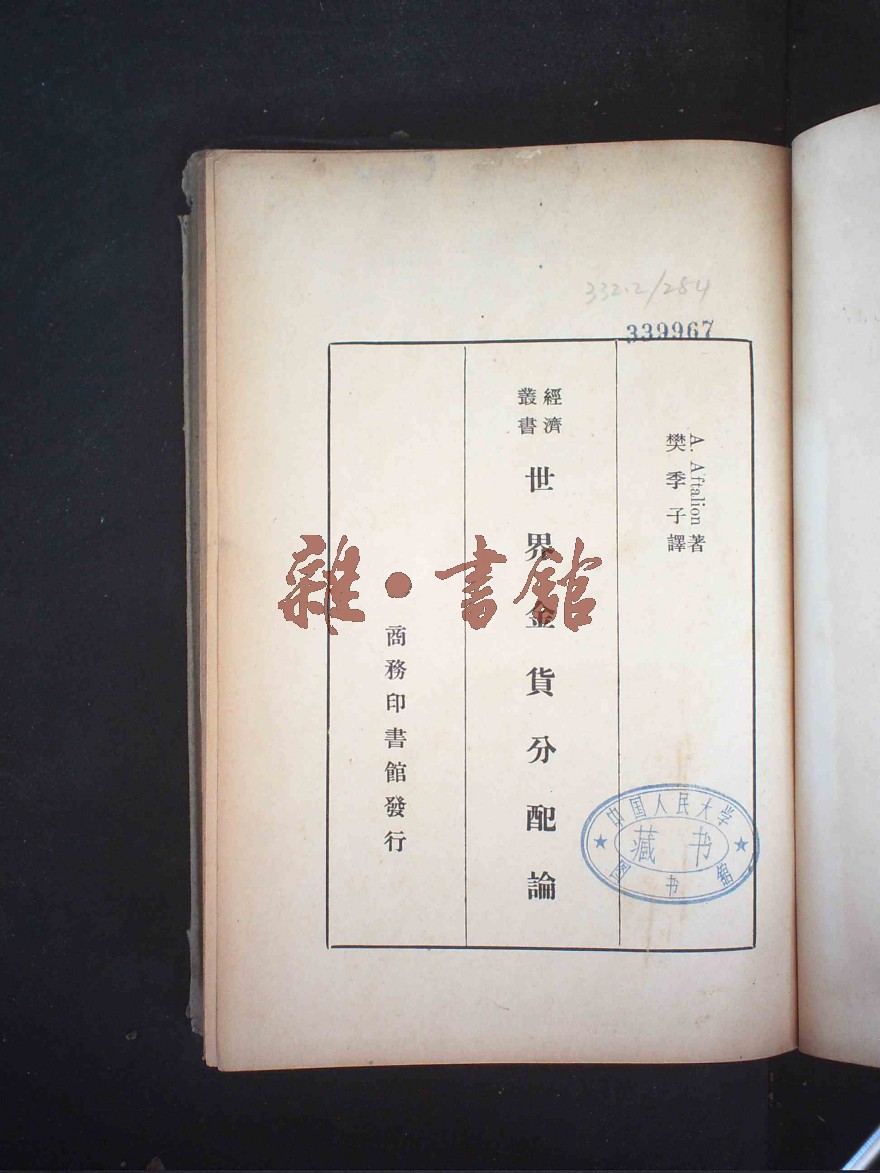 332.2/284
339967
A. Aftalion 著
樊季子譯
經濟
叢書
世界金貨分配論
商務印書館發行
雜•書館
中国人民大学
藏书
图书馆